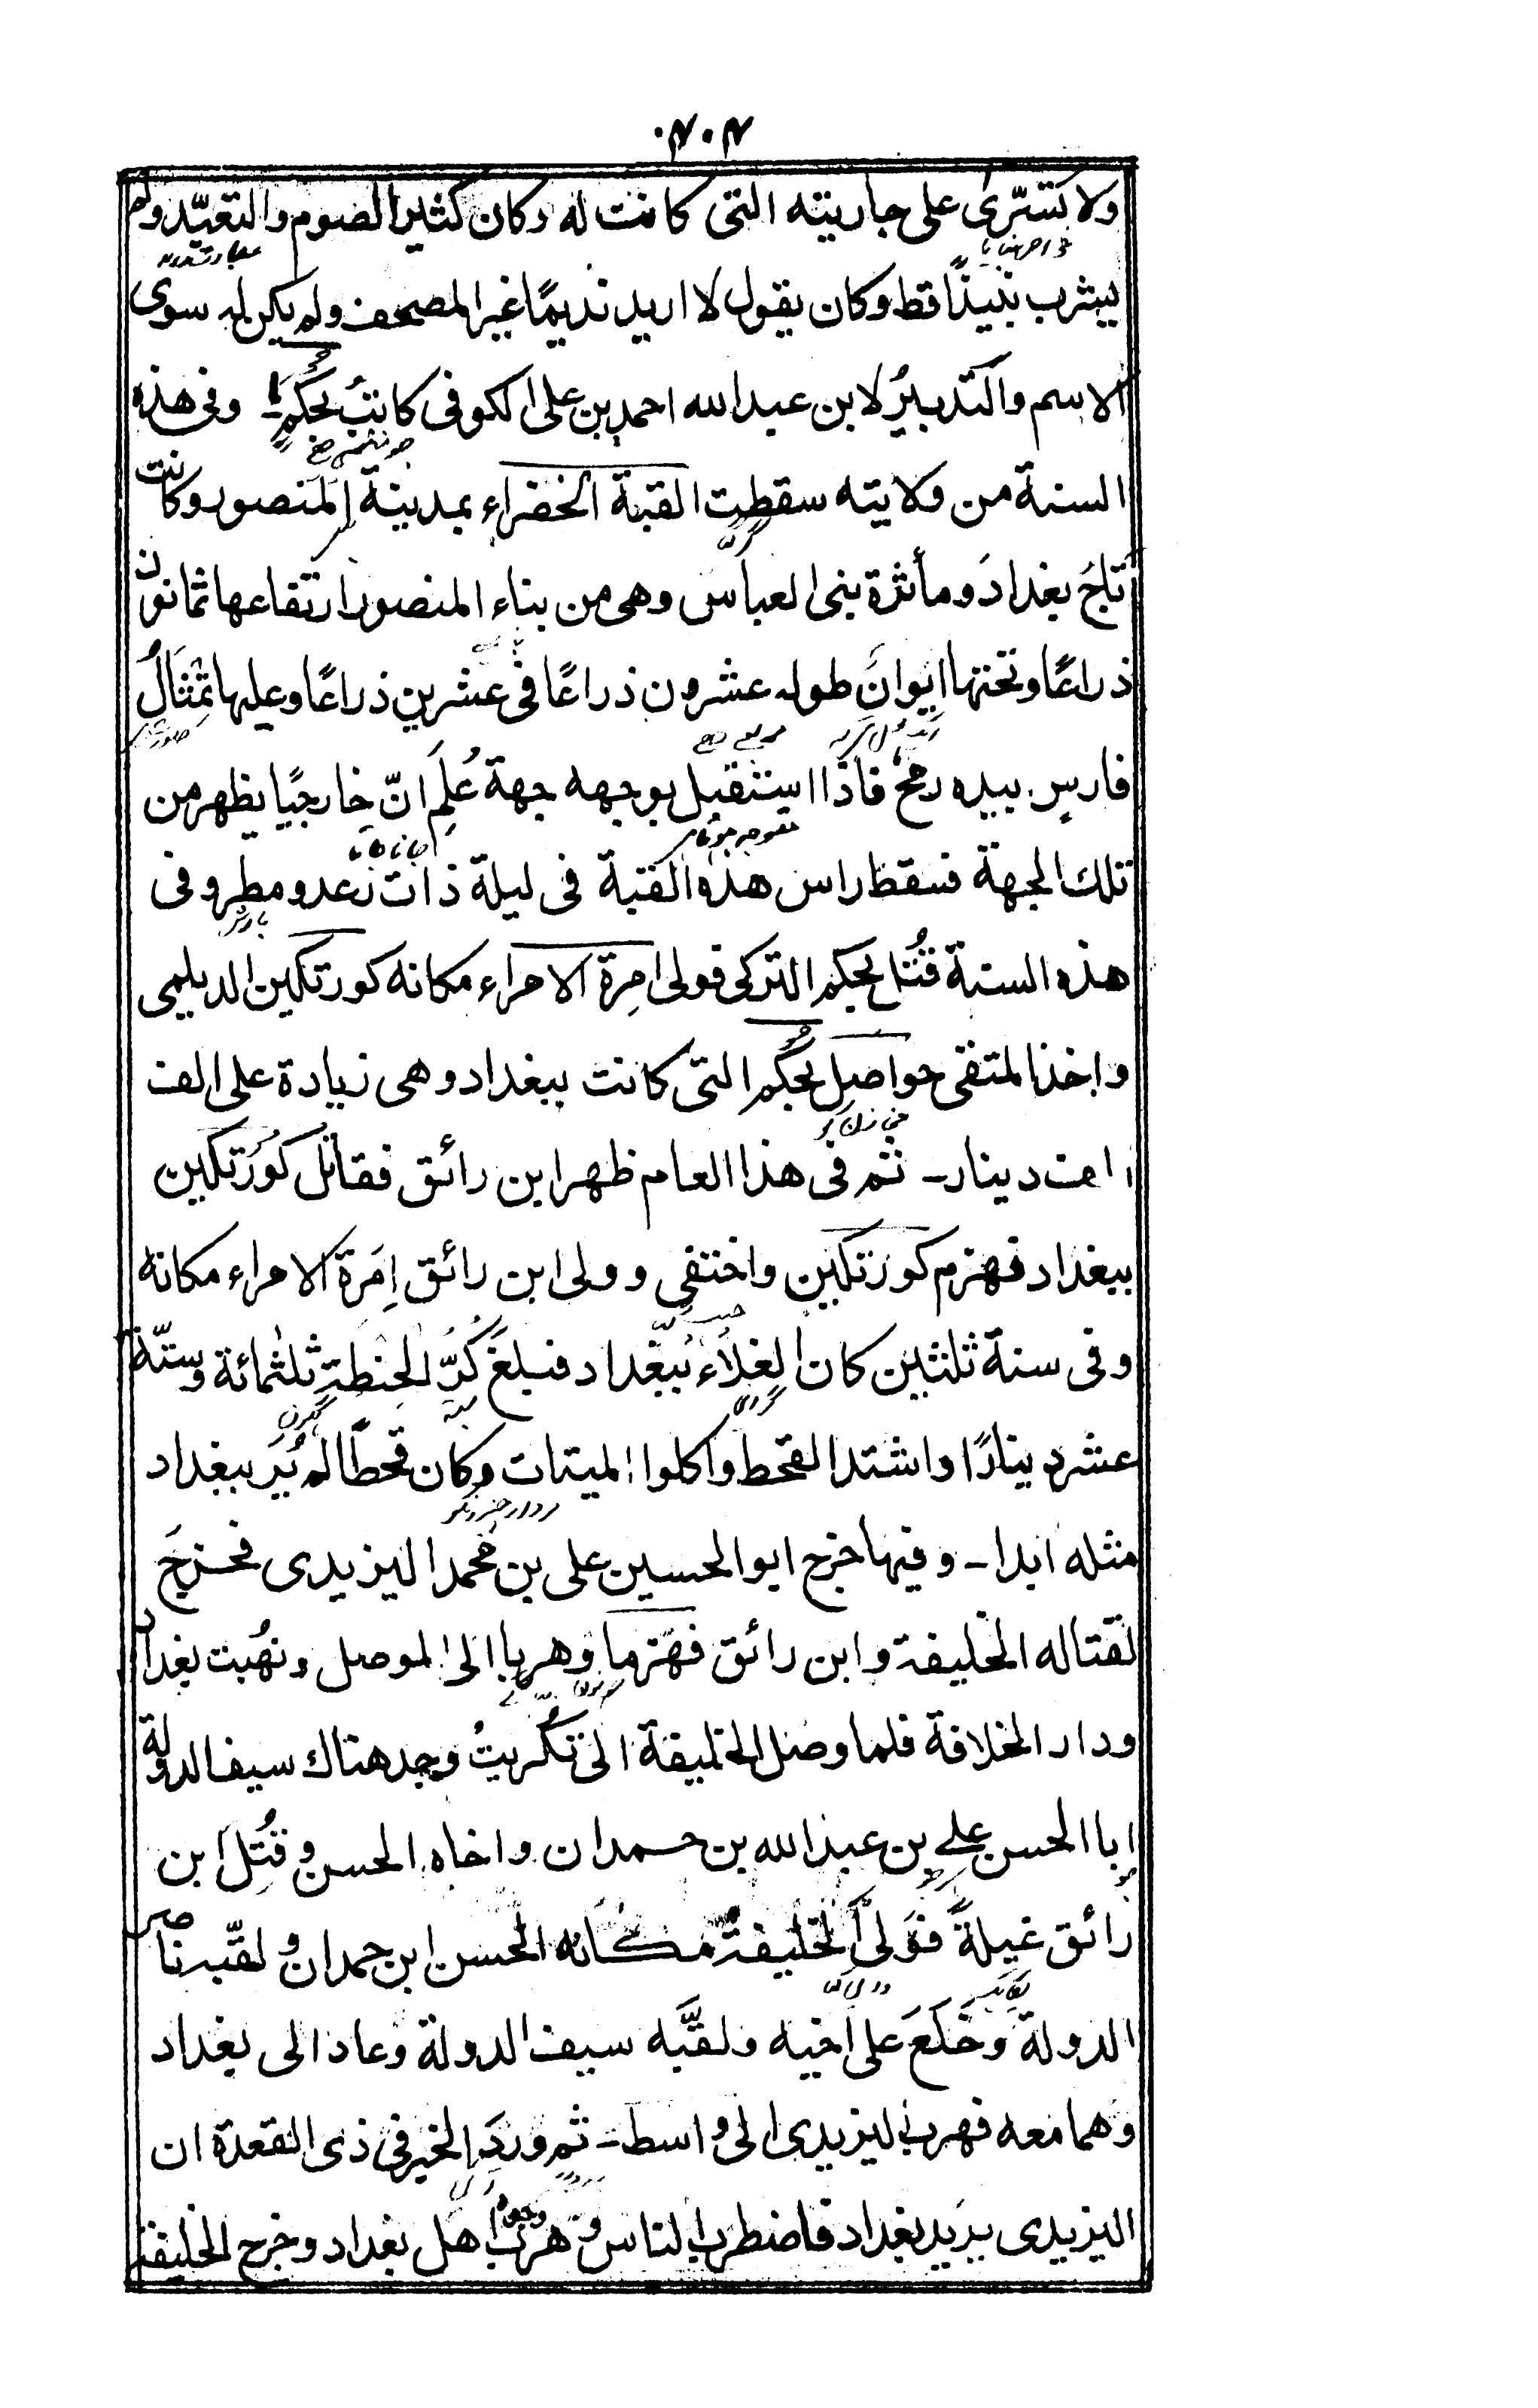 ولا تسرّى على جاريته التى كانت له وكان كثير الصوم والتعبّد ولم
يشرب نبيذًا قط وكان يقول لا اريد نديمًا غير المصحف ولم يكن له سوى
الاسم والتدبيرُ لابن عبد الله احمد بن على الكوفى كاتبُ بُحكم ـ وفى هذه
السنة من ولايته سقطت القبة الخضراء بمدينة المنصور وكانت
تاجَ بغدادَ ومأثرة بنى العباس وهى من بناء المنصور ارتفاعها ثمانون
ذراعًا وتحتها ايوان طوله عشرون ذراعًا فى عشرين ذراعًا وعليها تِمْثَالُ
فارسٍ بيده رمحٌ فاذا استقبل بوجهه جهة عُلِمَ انّ خارجيًا يظهر من
تلك الجهة فسقط راس هذه القبة فى ليلة ذات رعد ومطر وفى
هذه السنة قُتل بحكم التركى فولى امِرة الامراء مكانه كورتكين الديلمى
واخذ المتقى حواصل بُحكم التى كانت ببغداد وهى زيادة على الف
الف دينار ـ ثم فى هذا العام ظهر ابن رائق فقاتل كَوُرَتكين
ببغداد فهزم كورتكين واختفى وولى ابن رائق اِمَرة الامراء مكانه
وفى سنة ثلثين كان الغلاء ببغداد فبلغَ كُرُّ الحنطةِ ثلثمائة وستّة
عشر دينارًا واشتد القحط واكلوا الميتات وكان قحطًا لم يُرَ ببغداد
مثله ابدا ـ وفيها خرج ابو الحسين على بن محمد اليزيدى فخرجَ
لقتاله الخليفة وابن رائق فهُزما وهربا الى الموصل ونهُبت بغداد
ودار الخلافة فلما وصل الخليفة الى تكريتُ وجد هناك سيف الدولة
ابا الحسن على بن عبد الله بن حمدان واخاه الحسن وقُتِل ابن
رائق غيلةً فوَلىّ الخليفةُ مكانه الحسن ابن حمدان ولقّبه ناصر
الدولة وخَلعَ على اخيه ولقَّبه سيف الدولة وعاد الى بغداد
وهما معه فهرب اليزيدى الى واسط ـ ثم وردَ الخبر فى ذى القعدة ان
اليزيدى يريد بغداد فاضطرب الناس وهرب وجوهُ اهل بغداد وخرج الخليفة